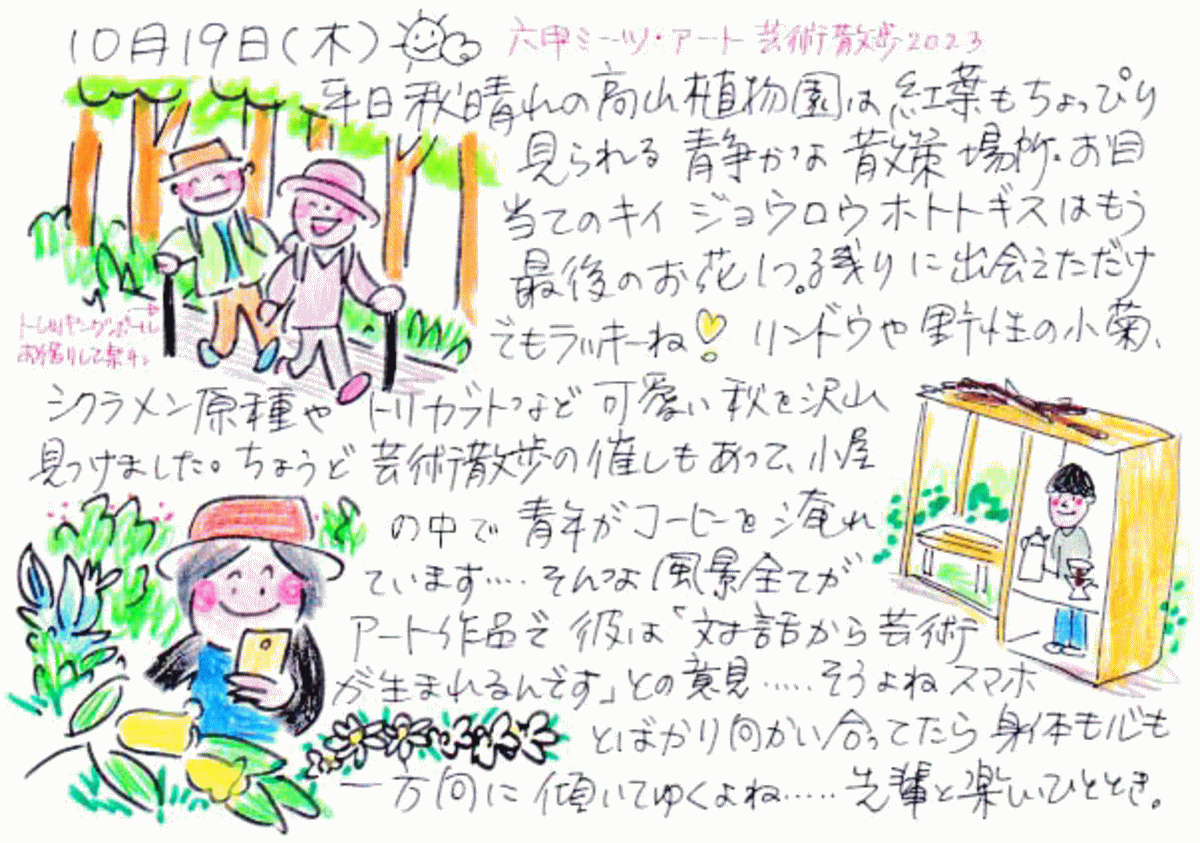 10月19日(木)
六甲ミーツ・アート 芸術散歩2023
平日秋晴れの高山植物園は紅葉もちょっぴり
見られる静かな散策場所。お目
当てのキイジョウロウホトトギスはもう
最後のお花1つ。る残りに出会えただけ
でもラッキーね
リンドウや野性の小菊、
トレッキングポール
お借りして楽チン
シクラメン原種やトリカブトなど可愛い秋を沢山
見つけました。ちょうど芸術散歩の催しもあって、小屋
の中で青年がコーヒーを淹れ
ています‥‥そんな風景全てが
アート作品で彼は「対話から芸術
が生まれるんです」との意見‥‥‥そうよねスマホ
とばかり向かい合ってたら身体も心も
一方向に傾いてゆくよね‥‥‥先輩と楽しいひととき。